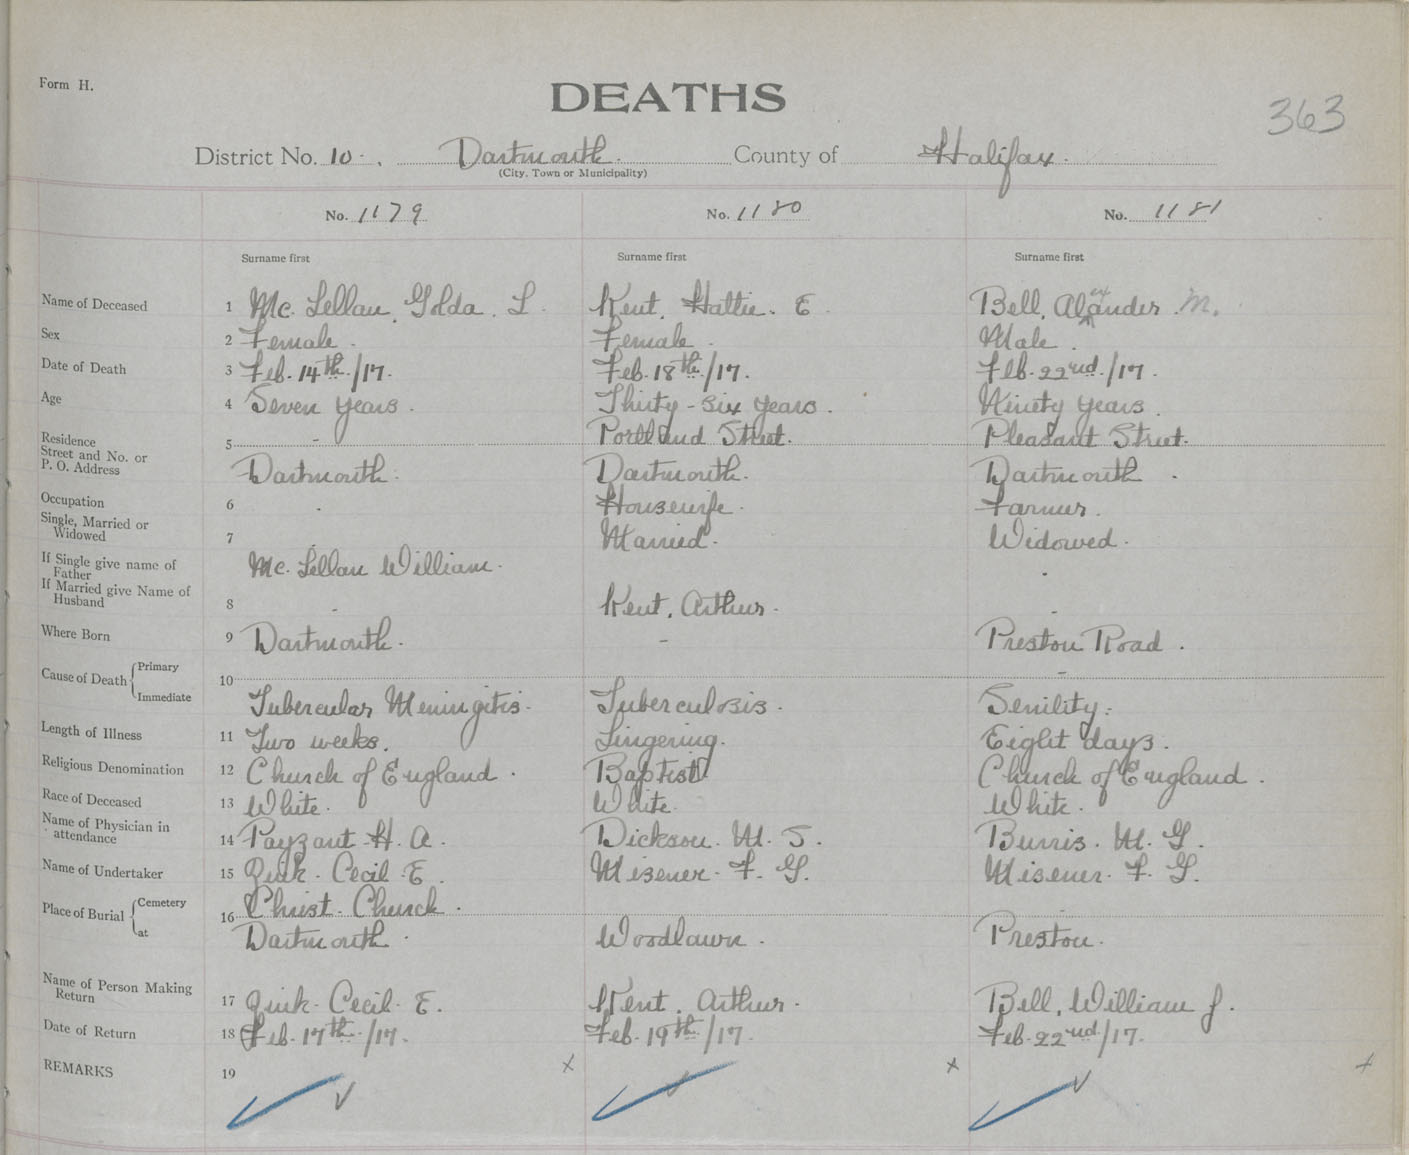 Form H.
DEATHS
363
District No. 10 . Dartmouth. County of Halifax.
(City, Town or Municipality)
No. 1179 No. 1180 No. 1181
Surname first Surname first Surname first
Name of Deceased 1 Mc. Lellan, Golda. L. Kent, Hattie. E. Bell, Alexander M.
Sex 2 Female. Female. Male.
Date of Death 3 Feb. 14th/17. Feb. 18th/17. Feb. 22nd/17.
Age 4 Seven years. Thirty-six years. Ninety years.
Residence 5 - Portland Street. Pleasant Street.
Street and No. or
P. O. Address Dartmouth. Dartmouth. Dartmouth.
Occupation 6 . Housewife. Farmer.
Single, Married or
Widowed 7 . Married. Widowed.
If Single give name of
Father Mc. Lellan William. -
If Married give Name of
Husband 8 - Kent, Arthur. -
Where Born 9 Dartmouth. - Preston Road.
Cause of Death { Primary 10 -
Immediate Tubercular Meningitis. Tuberculosis. Senility.
Length of Illness 11 Two weeks. Lingering. Eight days.
Religious Denomination 12 Church of England. Baptist Church of England.
Race of Deceased 13 White. White. White.
Name of Physician in
attendance 14 Payzant. H. A. Dickson. M. S. Burris. M. G.
Name of Undertaker 15 Quik. Cecil E. Misener. F. G. Misener. F. G.
Place of Burial { Cemetery 16 Christ Church. -
at Dartmouth. Woodlawn. Preston.
Name of Person Making
Return 17 Quik. Cecil. E. Kent, Arthur. Bell, William J.
Date of Return 18 Feb. 17th/17. Feb. 19th/17. Feb. 22nd/17.
REMARKS 19 x x x